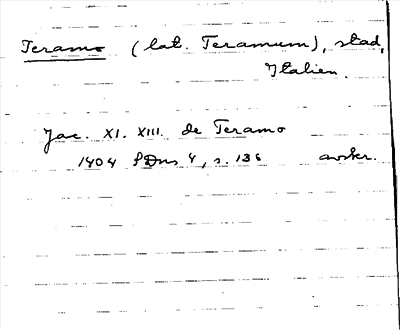 Teramo (lat. Teramum), stad,
Italien.
Jac. XI. XIII. de Teramo
1404 SDns 4, s. 136 avskr.